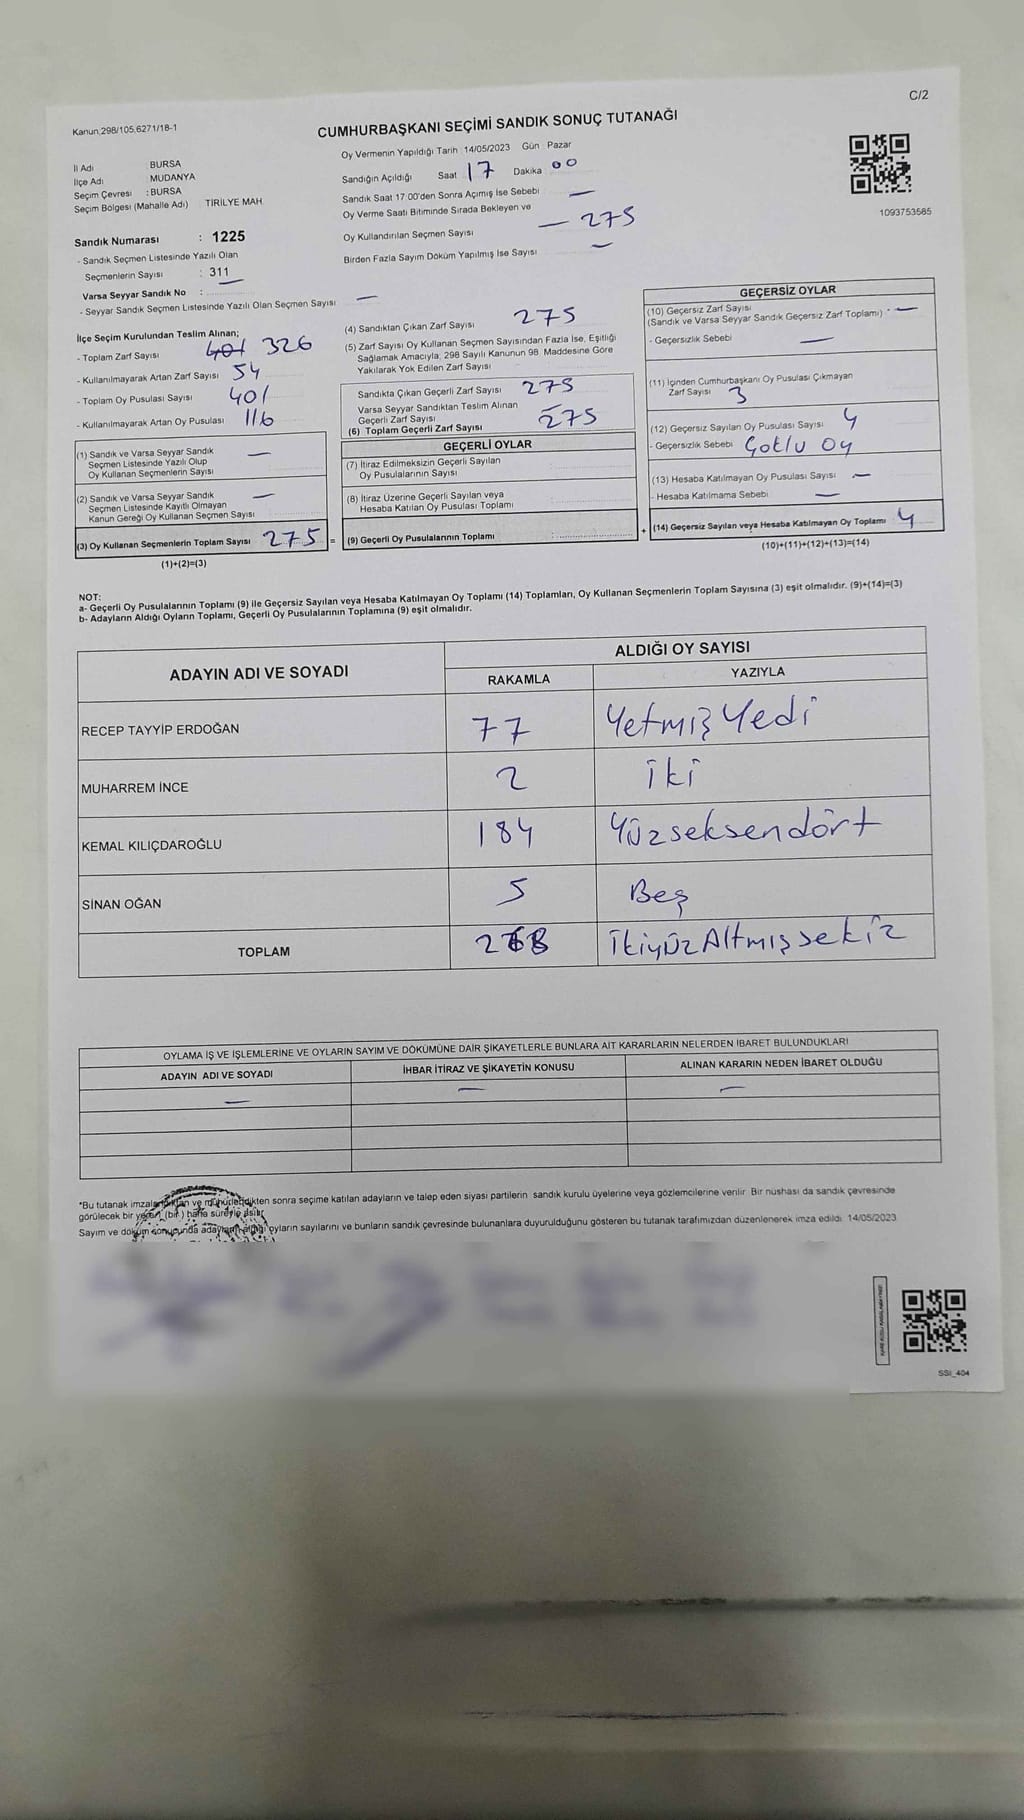 C/2
Kanun 298/105,6271/18-1
CUMHURBAŞKANI SEÇİMİ SANDIK SONUÇ TUTANAĞI
İl Adı : BURSA
İlçe Adı : MUDANYA
Seçim Çevresi : BURSA
Seçim Bölgesi (Mahalle Adı) TİRİLYE MAH.
Sandık Numarası : 1225
- Sandık Seçmen Listesinde Yazılı Olan
Seçmenlerin Sayısı : 311
Varsa Seyyar Sandık No : —
- Seyyar Sandık Seçmen Listesinde Yazılı Olan Seçmen Sayısı —
Oy Vermenin Yapıldığı Tarih 14/05/2023 Gün Pazar
Sandığın Açıldığı Saat 17 Dakika 00
Sandık Saat 17 00'den Sonra Açımış İse Sebebi —
Oy Verme Saati Bitiminde Sırada Bekleyen ve
Oy Kullandırılan Seçmen Sayısı — 275
Birden Fazla Sayım Döküm Yapılmış İse Sayısı —
1093753585
İlçe Seçim Kurulundan Teslim Alınan;
- Toplam Zarf Sayısı 401 326
- Kullanılmayarak Artan Zarf Sayısı 54
- Toplam Oy Pusulası Sayısı 401
- Kullanılmayarak Artan Oy Pusulası 116
(1) Sandık ve Varsa Seyyar Sandık
Seçmen Listesinde Yazılı Olup
Oy Kullanan Seçmenlerin Sayısı —
(2) Sandık ve Varsa Seyyar Sandık
Seçmen Listesinde Kayıtlı Olmayan
Kanun Gereği Oy Kullanan Seçmen Sayısı —
(3) Oy Kullanan Seçmenlerin Toplam Sayısı 275 =
(1)+(2)=(3)
(4) Sandıktan Çıkan Zarf Sayısı 275
(5) Zarf Sayısı Oy Kullanan Seçmen Sayısından Fazla İse, Eşitliği
Sağlamak Amacıyla; 298 Sayılı Kanunun 98. Maddesine Göre
Yakılarak Yok Edilen Zarf Sayısı
Sandıkta Çıkan Geçerli Zarf Sayısı 275
Varsa Seyyar Sandıktan Teslim Alınan
Geçerli Zarf Sayısı —
(6) Toplam Geçerli Zarf Sayısı 275
GEÇERLİ OYLAR
(7) İtiraz Edilmeksizin Geçerli Sayılan
Oy Pusulalarının Sayısı
(8) İtiraz Üzerine Geçerli Sayılan veya
Hesaba Katılan Oy Pusulası Toplamı
(9) Geçerli Oy Pusulalarının Toplamı +
GEÇERSİZ OYLAR
(10) Geçersiz Zarf Sayısı
(Sandık ve Varsa Seyyar Sandık Geçersiz Zarf Toplamı) —
- Geçersizlik Sebebi —
(11) İçinden Cumhurbaşkanı Oy Pusulası Çıkmayan
Zarf Sayısı 3
(12) Geçersiz Sayılan Oy Pusulası Sayısı 4
- Geçersizlik Sebebi Çoklu Oy
(13) Hesaba Katılmayan Oy Pusulası Sayısı —
- Hesaba Katılmama Sebebi —
(14) Geçersiz Sayılan veya Hesaba Katılmayan Oy Toplamı 4
(10)+(11)+(12)+(13)=(14)
NOT:
a- Geçerli Oy Pusulalarının Toplamı (9) ile Geçersiz Sayılan veya Hesaba Katılmayan Oy Toplamı (14) Toplamları, Oy Kullanan Seçmenlerin Toplam Sayısına (3) eşit olmalıdır. (9)+(14)=(3)
b- Adayların Aldığı Oyların Toplamı, Geçerli Oy Pusulalarının Toplamına (9) eşit olmalıdır.
ADAYIN ADI VE SOYADI ALDIĞI OY SAYISI
RAKAMLA YAZIYLA
RECEP TAYYİP ERDOĞAN 77 Yetmiş Yedi
MUHARREM İNCE 2 iki
KEMAL KILIÇDAROĞLU 184 Yüzseksendört
SİNAN OĞAN 5 Beş
TOPLAM 268 İkiyüzAltmışsekiz
OYLAMA İŞ VE İŞLEMLERİNE VE OYLARIN SAYIM VE DÖKÜMÜNE DAİR ŞİKAYETLERLE BUNLARA AİT KARARLARIN NELERDEN İBARET BULUNDUKLARI
ADAYIN ADI VE SOYADI İHBAR İTİRAZ VE ŞİKAYETİN KONUSU ALINAN KARARIN NEDEN İBARET OLDUĞU
— — —
*Bu tutanak imzalandıktan ve mühürlendikten sonra seçime katılan adayların ve talep eden siyasi partilerin sandık kurulu üyelerine veya gözlemcilerine verilir. Bir nüshası da sandık çevresinde
görülecek bir yere (bir) hafta süreyle asılır.
Sayım ve döküm sonucunda adayların aldığı oyların sayılarını ve bunların sandık çevresinde bulunanlara duyurulduğunu gösteren bu tutanak tarafımızdan düzenlenerek imza edildi. 14/05/2023
SSI_404